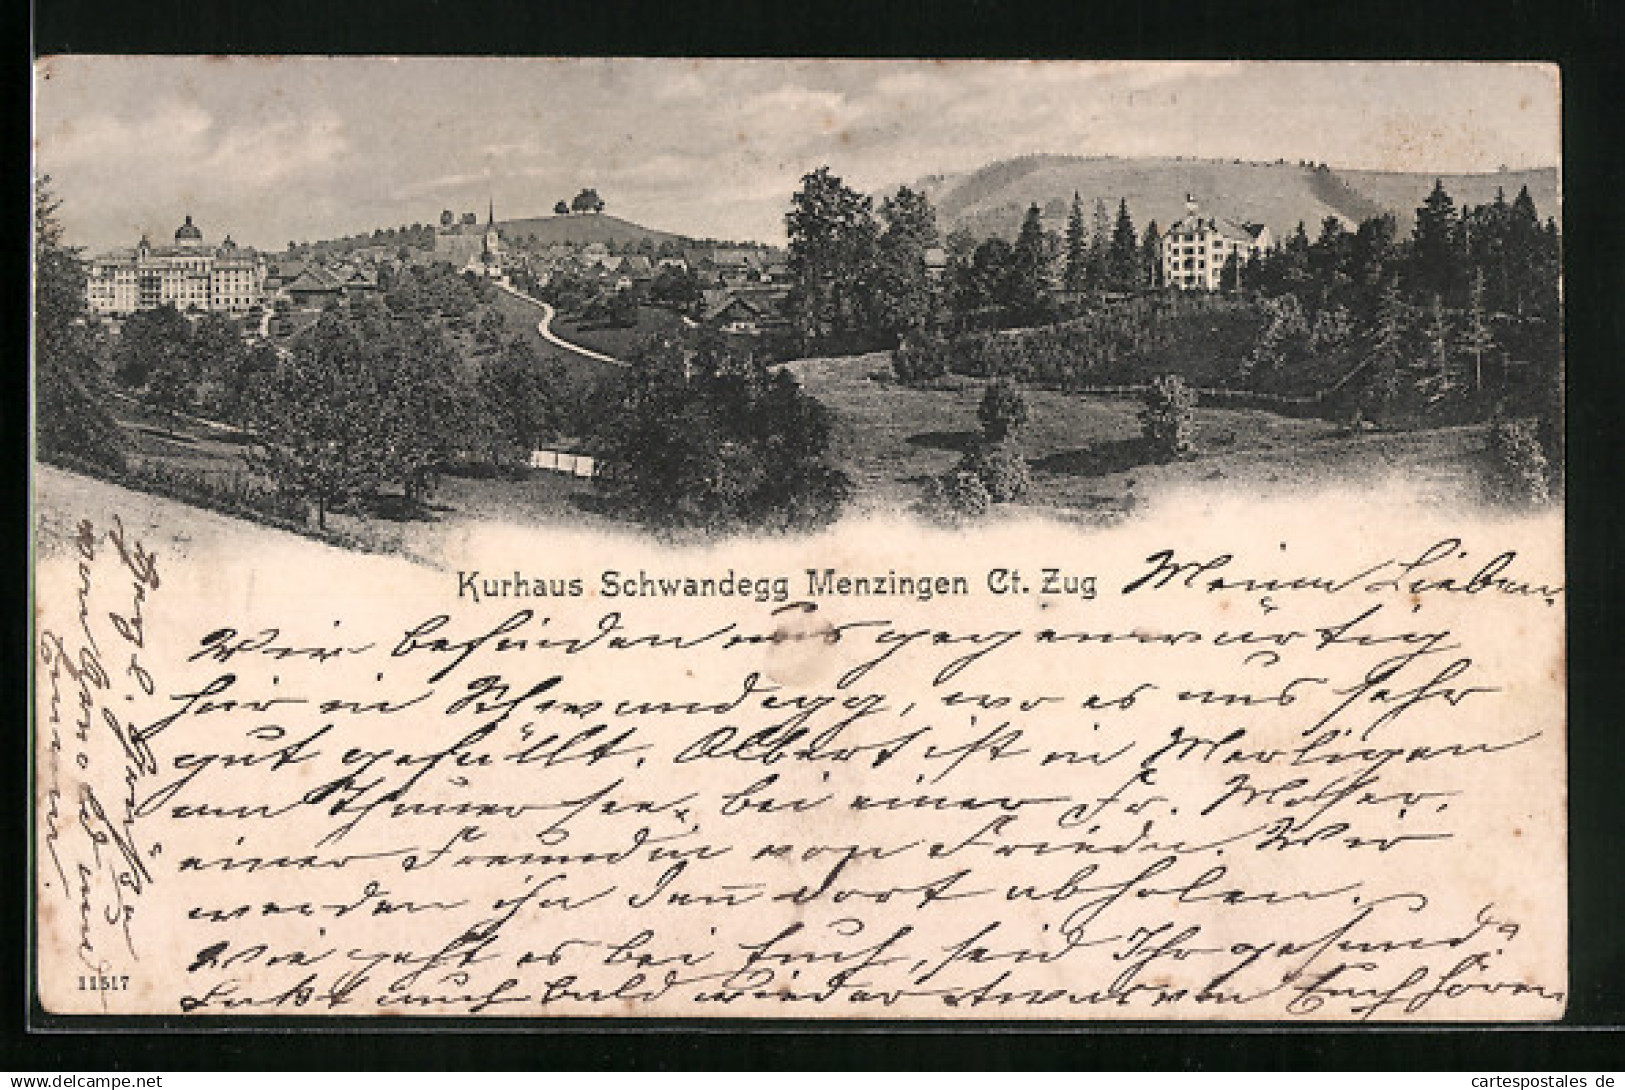 Kurhaus Schwandegg Menzingen Ct. Zug
Meine Lieben.
Wir befinden uns gegenwärtig
hier in Schwandegg, wo es uns sehr
gut gefällt. Albert ist in Merligen
am Thunersee, bei einer Fr. Moser,
einer Freundin von Frieda. Wir
werden ihn dann dort abholen.
Wie geht es bei Euch, seid Ihr gesund?
Laßt auch bald wieder etwas von Euch hören
Herzl. Grüße
von und
11517
cartespostales de